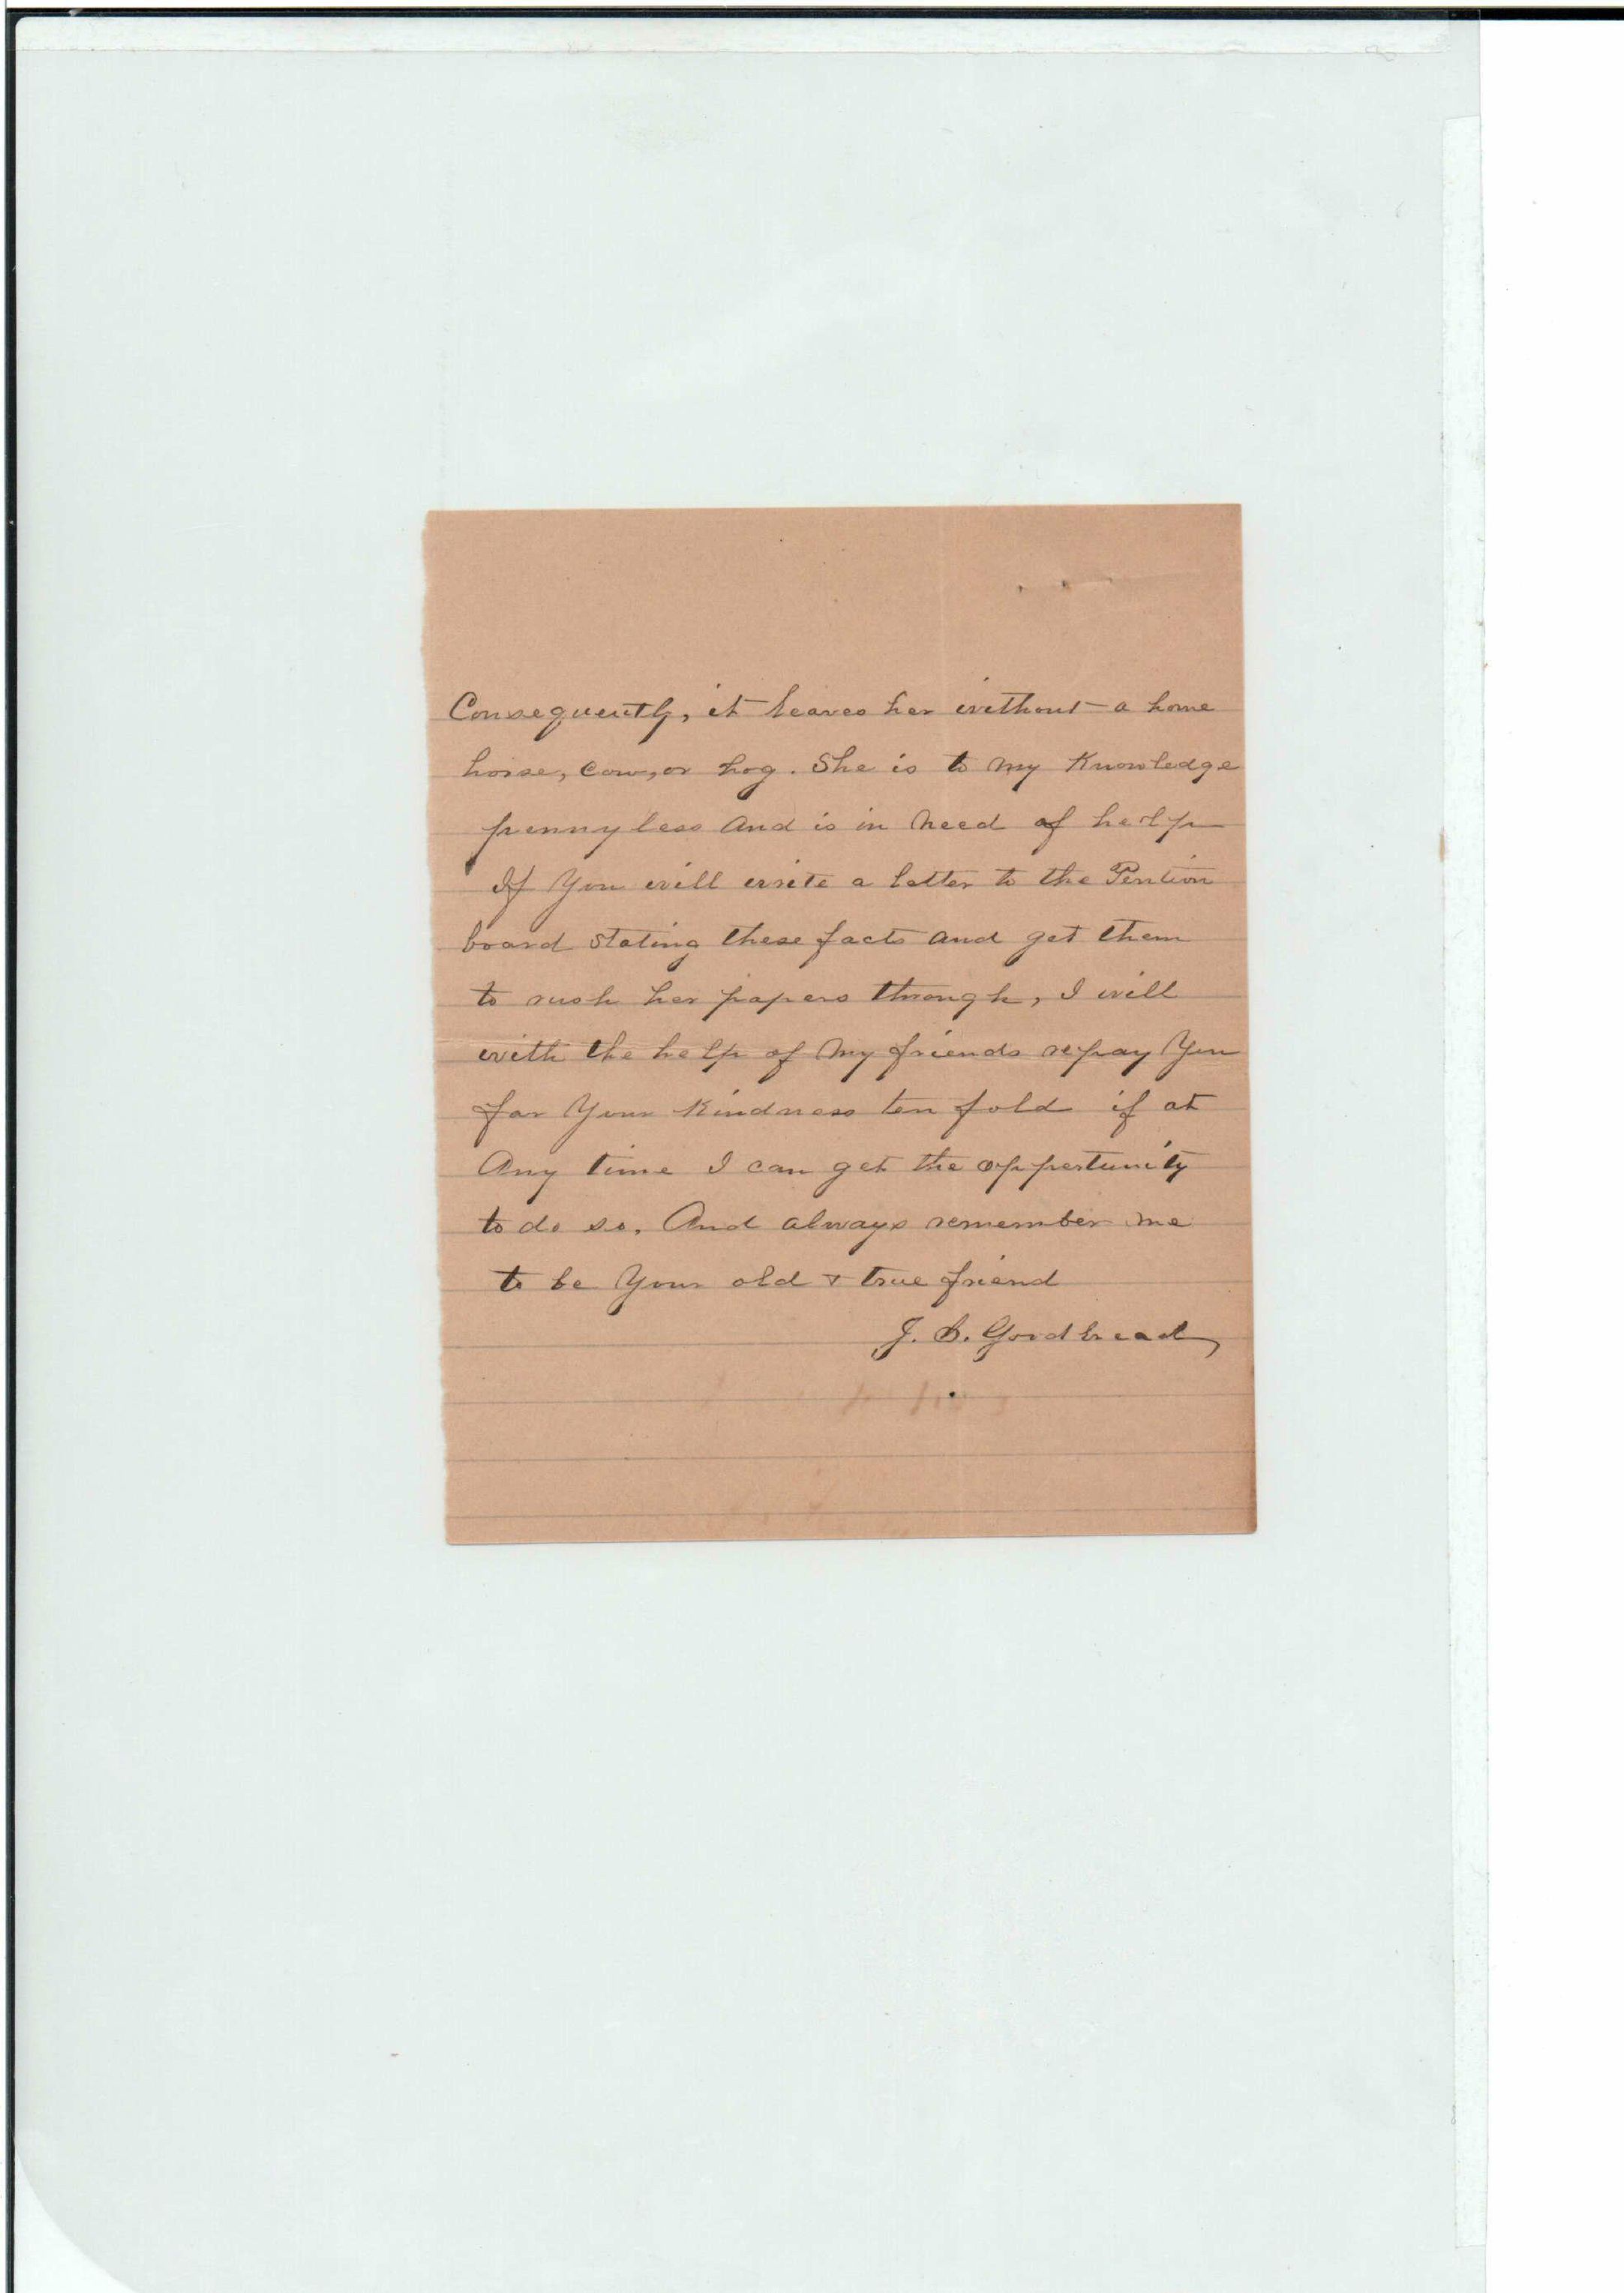 Consequently, it leaves her without a home
horse, cow, or hog. She is to my Knowledge
pennyless and is in need of help
If you will write a letter to the Pention
board stating these facts and get them
to rush her papers through, I will
with the help of my friends repay you
for your kindness ten fold if at
any time I can get the oppertunity
to do so. And always remember me
to be your old & true friend
J. B. Goodbread,